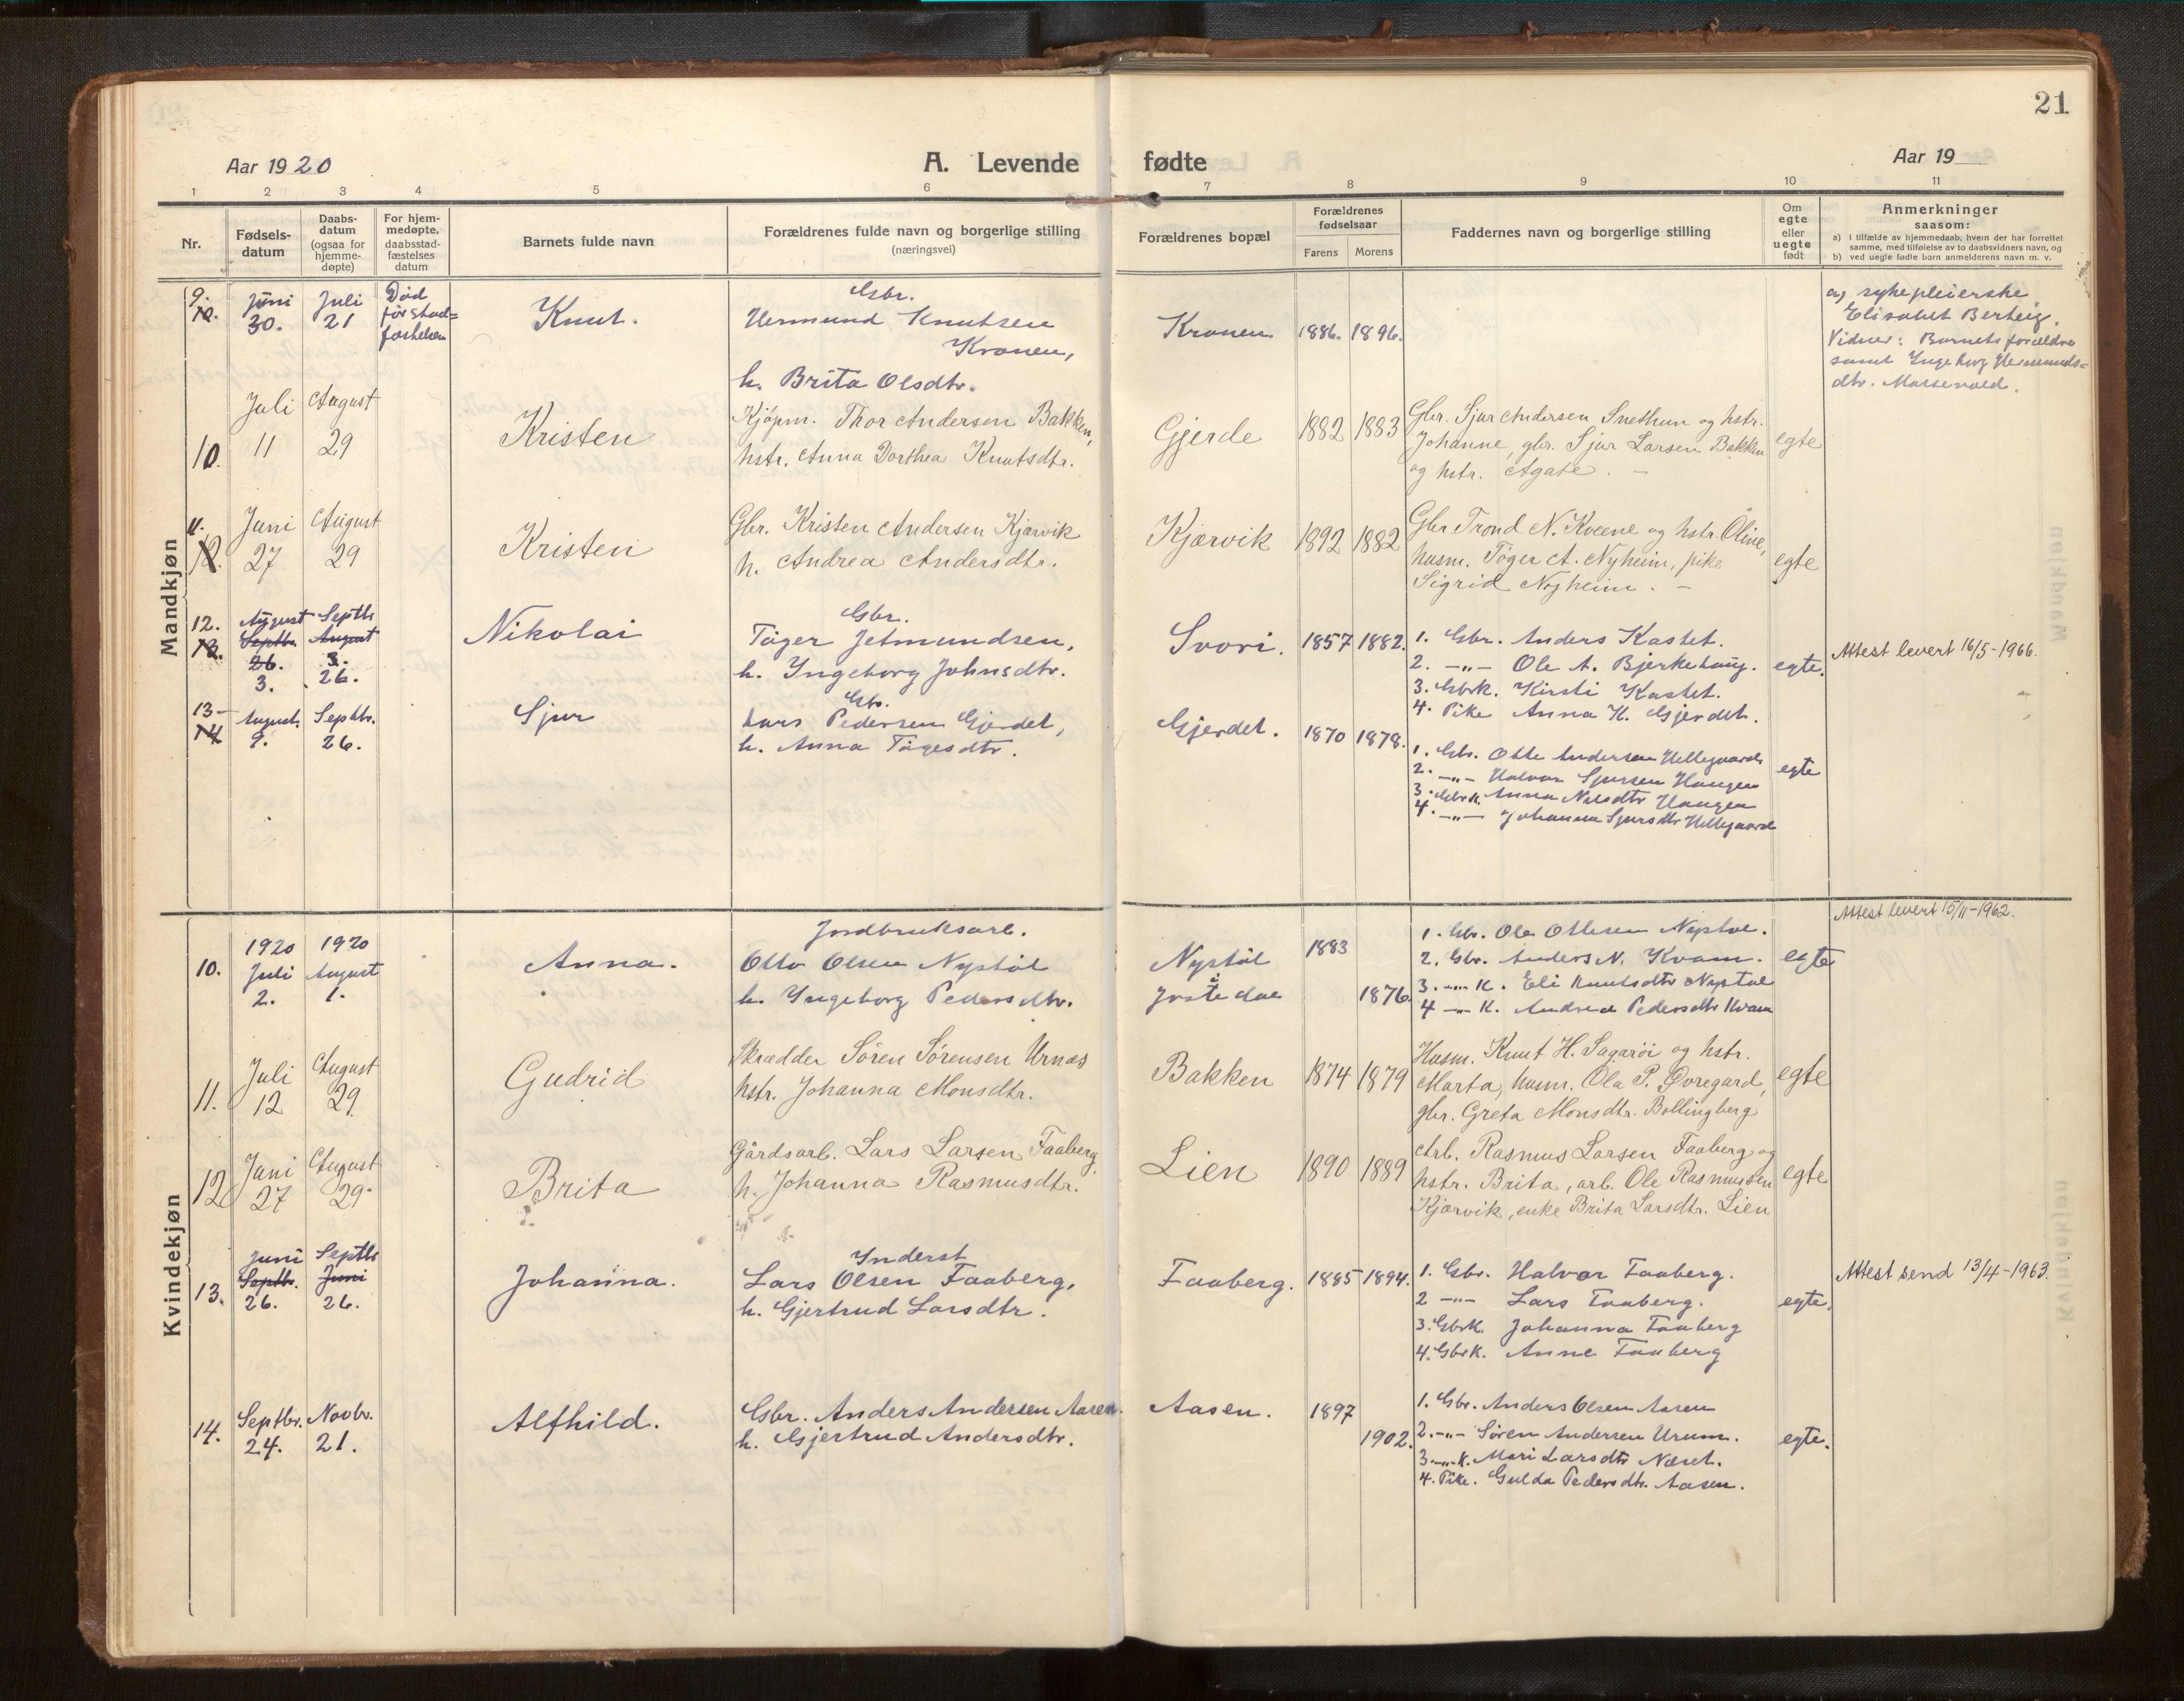 21
Aar 1920
A. Levende fødte
Aar 19
1 2 3 4 5 6 7 8 9 10 11
Nr.
Fødsels-
datum
Daabs-
datum
(ogsaa for
hjemme-
døpte)
For hjem-
medøpte,
daabsstad-
fæstelses
datum
Barnets fulde navn
Forældrenes fulde navn og borgerlige stilling
(næringsvei)
Forældrenes bopæl
Forældrenes
fødselsaar
Farens Morens
Faddernes navn og borgerlige stilling
Om
egte
eller
uegte
født
Anmerkninger
saasom:
a) i tilfælde av hjemmedaab, hvem der har forrettet
samme, med tilføielse av to daabsvidners navn, og
b) ved uegte fødte barn anmelderens navn m. v.
Mandkjøn
9.
10.
Juni
30.
Juli
21
Død
før stad=
festelsen
Knut.
Gbr.
Hermund Knutsen
Kronen,
h. Brita Olsdtr.
Kronen
1886. 1896.
a) sykepleierske
Elisabet Berteig.
Vidner: Barnets forældre
samt Ingeborg Hermunds=
dtr.
10.
Juli
11
August
29
Kristen
Kjøpm. Thor Andersen Bakken,
hstr. Anna Dorthea Knutsdtr.
Gjerde
1882 1883
Gbr. Sjur Andersen Snethun og hstr.
Johanne, gbr. Sjur Larsen Bakken
og hstr. Agate. –
egte
11.
12.
Juni
27
August
29
Kristen
Gbr. Kristen Andersen Kjærvik
h. Andrea Andersdtr.
Kjærvik
1892 1882
Gbr. Trond N. Kveene og hstr. Oline,
husm. Tøger A. Nyheim, pike
Sigrid Nyheim. –
egte
12.
13.
August
Septbr.
26.
3.
Septbr
August
3.
26.
Nikolai
Gbr.
Tøger Jetmundsen,
h. Ingeborg Johnsdtr.
Svori.
1857 1882.
1. Gbr. Anders Kastet.
2. –"– Ole A. Bjerkehaug.
3. Gbrk. Kirsti Kastet.
4. Pike Anna H. Gjerdet.
egte.
Attest levert 16/5-1966.
13
14
August
9.
Septbr.
26.
Sjur
Gbr.
Lars Pedersen Gjerdet,
h. Anna Tøgesdtr.
Gjerdet.
1870 1878.
1. Gbr. Otte Andersen Hellegaard
2. –"– Halvor Sjursen Haugen
3. Gbrk. Anna Nilsdtr Haugen
4. –"– Johanna Sjursdtr Hellegaard
egte
Kvindekjøn
10.
1920
Juli
2.
1920
August
1.
Anna.
Jordbruksarb.
Otto Olsen Nystøl
h. Ingeborg Pedersdtr.
Nystøl
i
Jostedal
1883
1876.
1. Gbr. Ole Ottesen Nystøl.
2. Gbr. Anders N. Kvam.
3. –"– K. Eli Knutsdtr Nystøl
4 –"– K. Andrea Pedersdtr Kvam
egte
Attest levert 15/11-1962.
11.
Juli
12
August
29.
Gudrid
Skrædder Søren Sørensen Urnæs
hstr. Johanna Monsdtr.
Bakken
1874 1879
Husm. Knut H. Sagarøi og hstr.
Marta, husm. Ola P. Øvregard,
gbr. Greta Monsdtr. Bollingberg
egte
12
Juni
27
August
29
Brita
Gårdsarb. Lars Larsen Faaberg,
h. Johanna Rasmusdtr.
Lien
1890 1889
Arb. Rasmus Larsen Faaberg og
hstr. Brita, arb. Ole Rasmussen
Kjærvik, enke Brita Larsdtr. Lien
egte
13.
Juni
Septbr.
26.
Septbr
Juni
26.
Johanna.
Inderst
Lars Olsen Faaberg,
h. Gjertrud Larsdtr.
Faaberg.
1885 1894.
1. Gbr. Halvor Faaberg.
2 –"– Lars Faaberg.
3. Gbrk. Johanna Faaberg
4. Gbrk. Anne Faaberg
egte.
Attest send 13/4-1963.
14.
Septbr.
24.
Novbr.
21.
Alfhild.
Gbr. Anders Andersen Aasen.
h. Gjertrud Andersdtr.
Aasen.
1897
1902.
1. Gbr. Anders Olsen Aasen
2. –"– Søren Andersen Urum.
3 –"– K. Mari Larsdtr Næset.
4. Pike. Gulda Pedersdtr. Aasen.
egte.